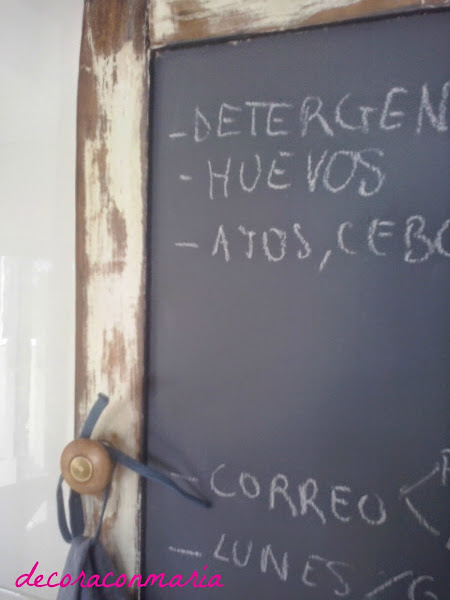 - DETERGEN
- HUEVOS
- AJOS, CEBO
- CORREO <
- LUNES/G
decoraconmaria